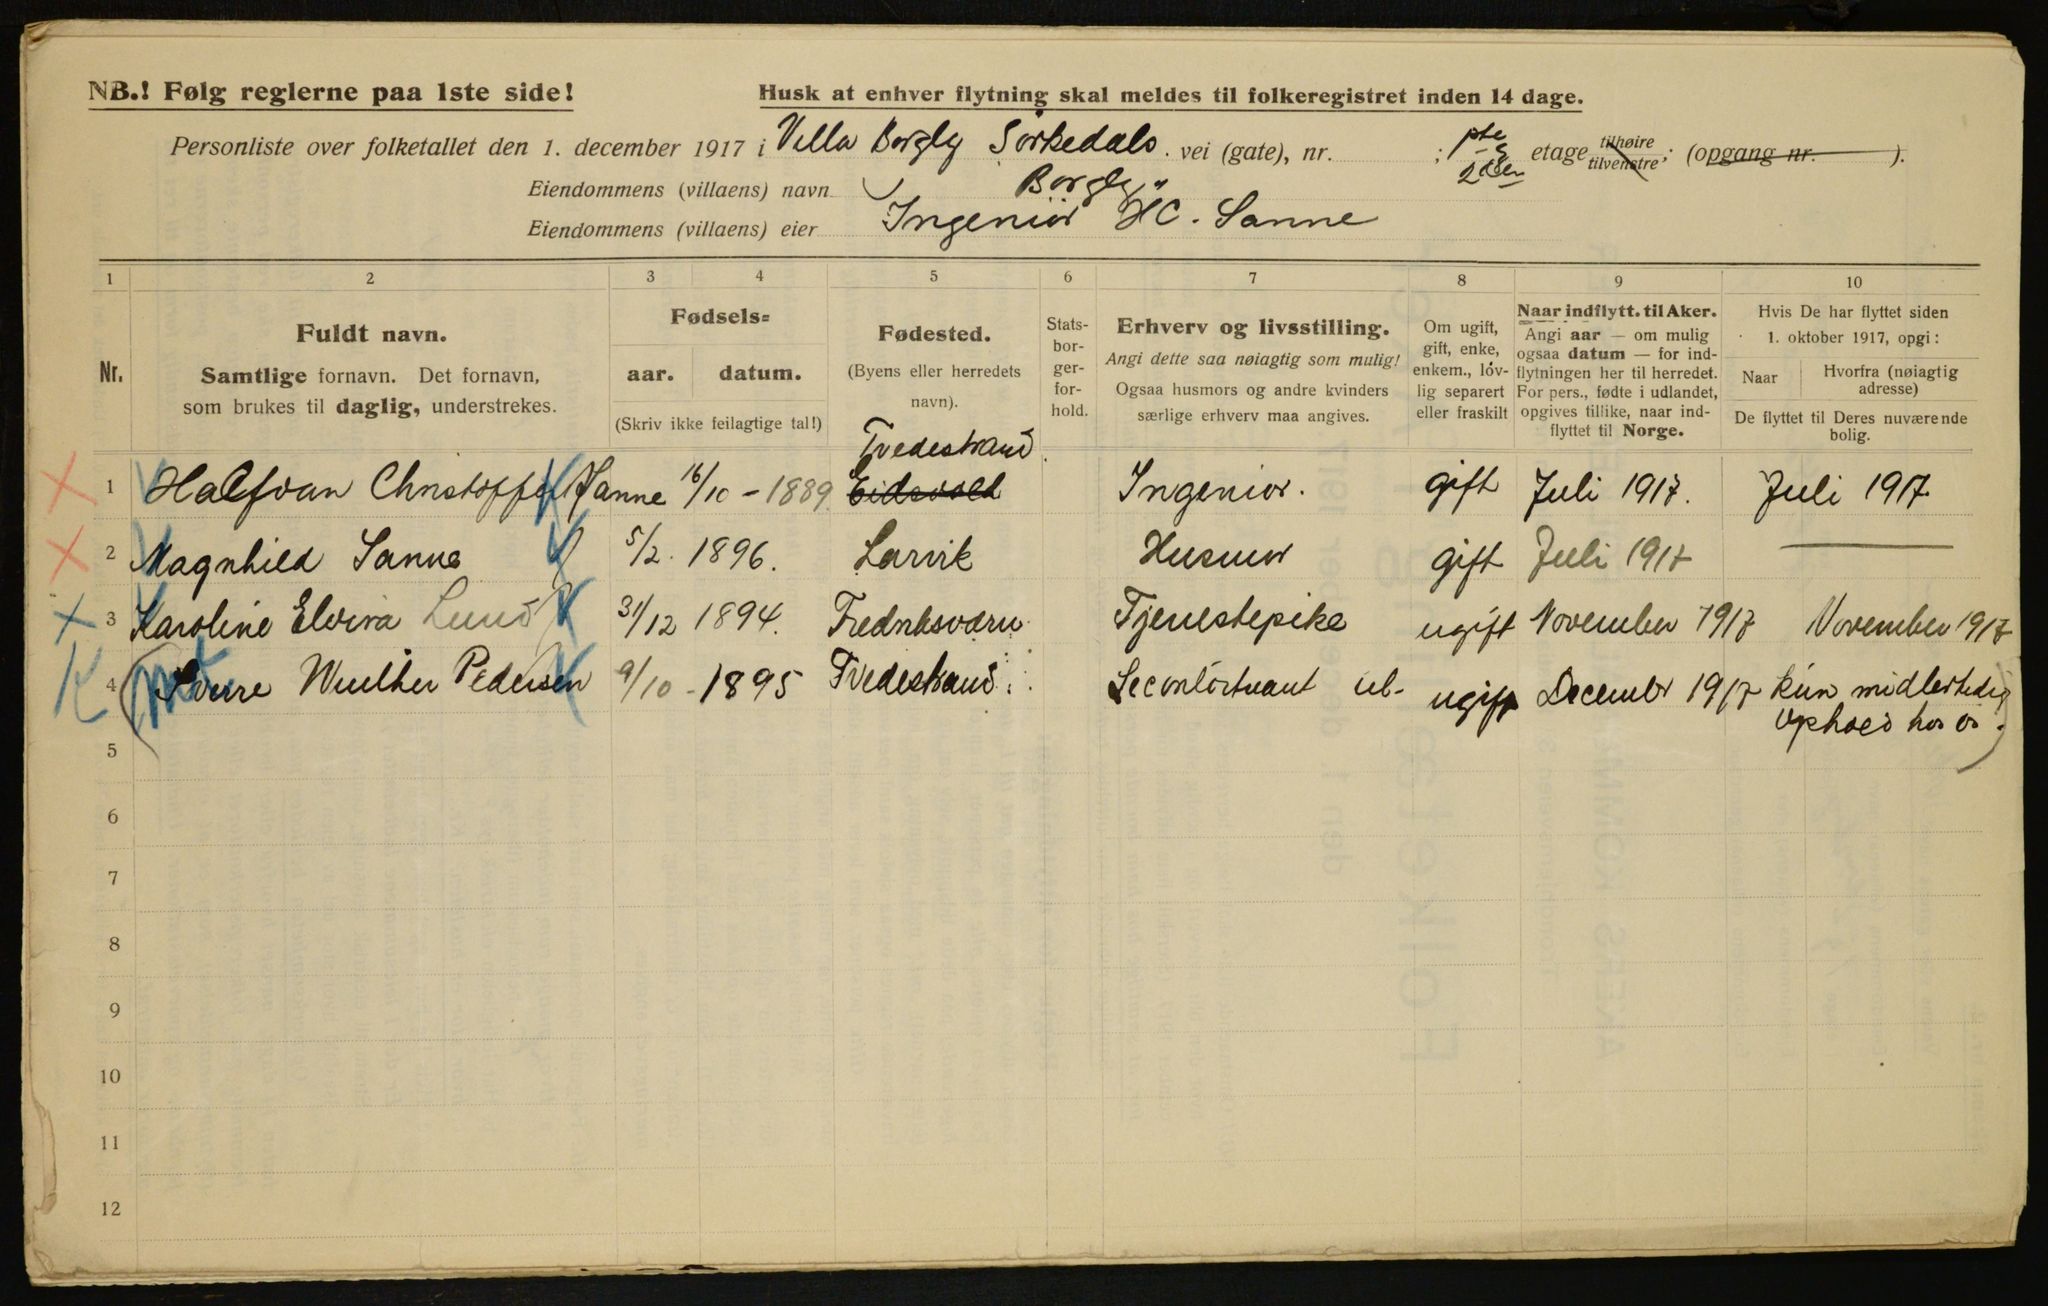 NB.! Følg reglerne paa 1ste side!
Husk at enhver flytning skal meldes til folkeregistret inden 14 dage.
Personliste over folketallet den 1. december 1917 i Villa Borgly Sörkedals vei (gate), nr. ; 1ste & 2den etage tilhøire tilvenstre; (opgang nr. ).
Eiendommens (villaens) navn Borgly
Eiendommens (villaens) eier Ingeniör HC. Sanne
1 2 3 4 5 6 7 8 9 10
Nr.
Fuldt navn.
Samtlige fornavn. Det fornavn,
som brukes til daglig, understrekes.
Fødsels=
aar. datum.
(Skriv ikke feilagtige tal!)
Fødested.
(Byens eller herredets
navn).
Stats-
bor-
ger-
for-
hold.
Erhverv og livsstilling.
Angi dette saa nøiagtig som mulig!
Ogsaa husmors og andre kvinders
særlige erhverv maa angives.
Om ugift,
gift, enke,
enkem., løv-
lig separert
eller fraskilt
Naar indflytt. til Aker.
Angi aar — om mulig
ogsaa datum — for ind-
flytningen her til herredet.
For pers., fødte i udlandet,
opgives tillike, naar ind-
flyttet til Norge.
Hvis De har flyttet siden
1. oktober 1917, opgi:
Naar
Hvorfra (nøiagtig
adresse)
De flyttet til Deres nuværende
bolig.
Tvedestrand
1 Halfvan Christoffer Sanne 16/10 - 1889 Eidsvold Ingeniör. gift Juli 1917. Juli 1917.
2 Magnhild Sanne 5/2. 1896. Larvik Husmor gift Juli 1917
3 Karoline Elvira Lund 31/12 1894. Fredriksværn Tjenestepike ugift November 1917 November 1917
4 (Sverre Wulther Pedersen 9/10 - 1895 Tvedestrand. ugift December 1917 kun midlertidig
ophold hos os.)
5
6
7
8
9
10
11
12